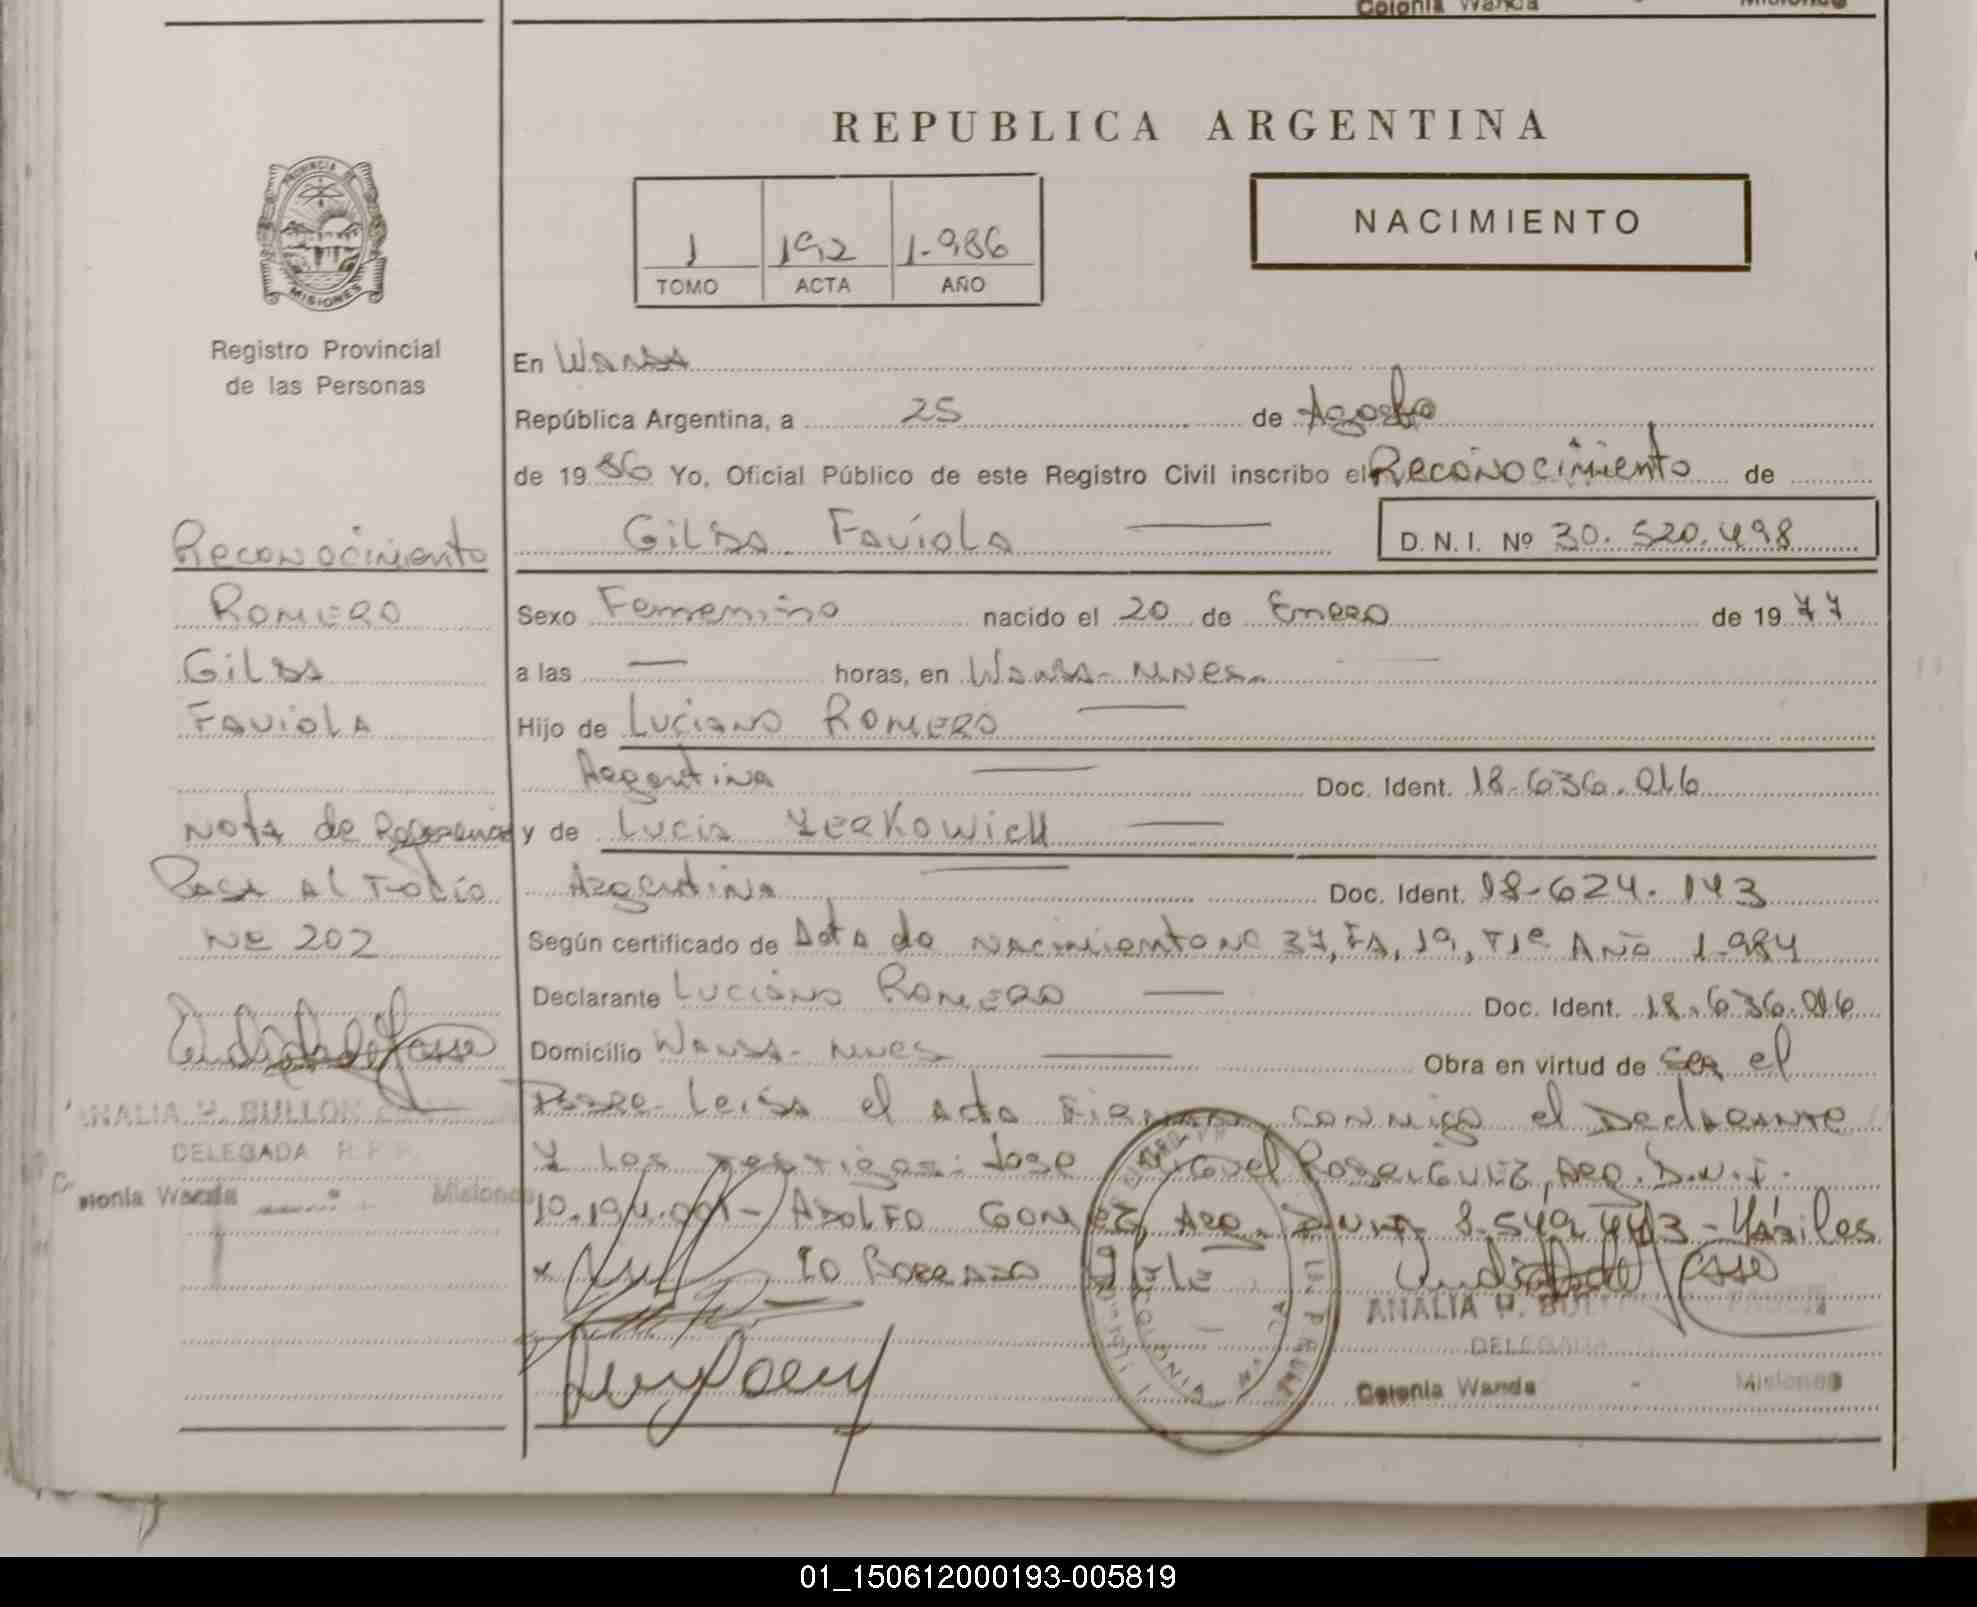 Colonia Wanda - Misiones
REPUBLICA ARGENTINA
PROVINCIA DE
MISIONES
1 192 1.986
TOMO ACTA AÑO
NACIMIENTO
Registro Provincial
de las Personas
En Wanda
República Argentina, a 25 de Agosto
de 1986 Yo, Oficial Público de este Registro Civil inscribo el Reconocimiento de
Gilda Faviola D.N.I. Nº 30.520.498
Reconocimiento
Romero
Gilda
Faviola
Nota de Referencia
Pasa al Folio
Nº 202
ANALIA H. BULLON
DELEGADA R.P.P.
Colonia Wanda - Misiones
Sexo Femenino nacido el 20 de Enero de 1977
a las — horas, en Wanda - Mnes.
Hijo de Luciano Romero
Argentina Doc. Ident. 18.636.016
y de Lucia Yerkowich
Argentina Doc. Ident. 18-624.143
Según certificado de Acta de Nacimiento Nº 37, Fº, 19, T1º Año 1.984
Declarante Luciano Romero Doc. Ident. 18.636.016
Domicilio Wanda - Mnes Obra en virtud de ser el
Padre. Leida el acta Firman conmigo el Declarante
y los testigos: Jose Miguel Rodriguez, Arg. D.N.I.
10.194.001 - Adolfo Gomez, Arg. 8.549.443 -
Borrado Vale
ANALIA H.
DELEGADA
Colonia Wanda - Misiones
01_150612000193-005819